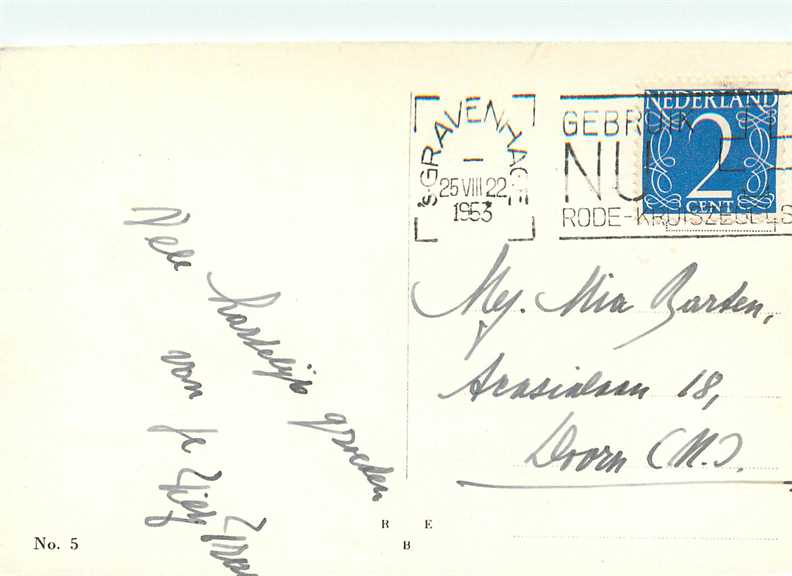 'S-GRAVENHAGE
25 VIII 22
1953
GEBRUIK
NU
RODE-KRUISZEGELS
NEDERLAND
2
CENT
Vele
hartelijke groeten
van je
Mej. Mia Barten,
Acacialaan 18,
Doorn (N.).
R E
B
No. 5